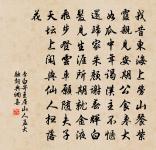 我昔東海上勞山餐紫
霞親見安期公食棗大
如瓜中年謁漢主不愜
還歸家朱顏謝春輝白
髮見生涯所期就金液
飛步登雲車願隨夫子
天壇上閒與仙人掃落
花
李白寄王屋山人孟大
融詞典網